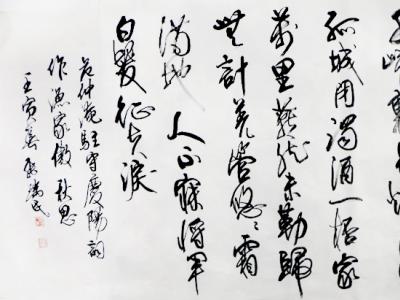 孤城閉濁酒一杯家
萬里燕然未勒歸
無計羌管悠悠霜
滿地 人不寐將軍
白髮征夫淚
范仲淹駐守慶陽詞
作漁家傲 秋思
壬寅春